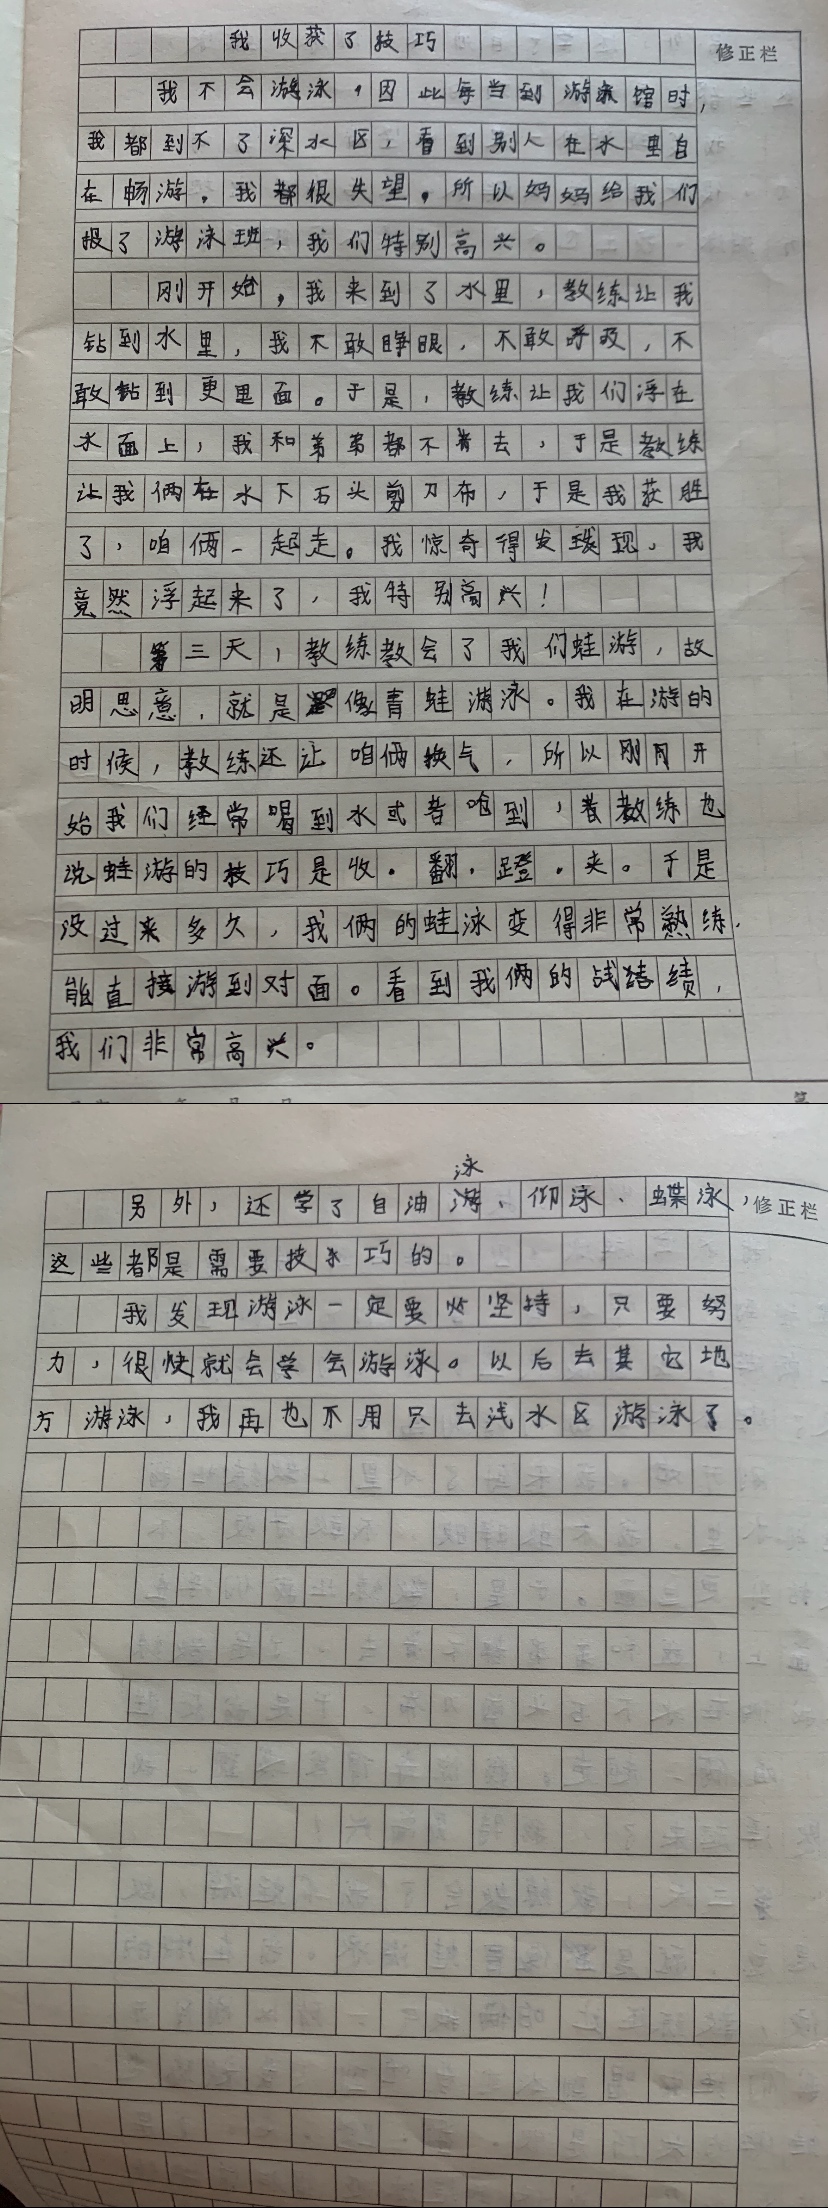 我收获了技巧
修正栏
我不会游泳，因此每当到游泳馆时，
我都到不了深水区，看到别人在水里自
在畅游。我都很失望。所以妈妈给我们
报了游泳班，我们特别高兴。
刚开始，我来到了水里，教练让我
钻到水里，我不敢睁眼，不敢呼及，不
敢钻到更里面。于是，教练让我们浮在
水面上，我和弟弟都不肯去，于是教练
让我俩在水下石头剪刀布，于是我获胜
了，咱俩一起走。我惊奇得发现，我
竟然浮起来了，我特别高兴！
第三天，教练教会了我们蛙游，故
明思意，就是像青蛙游泳。我在游的
时候，教练还让咱俩换气，所以刚开
始我们经常喝到水或者呛到，教练也
说蛙游的技巧是收。翻。蹬。夹。于是
没过来多久，我俩的蛙泳变得非常熟练，
能直接游到对面。看到我俩的战绩，
我们非常高兴。
另外，还学了自油泳、仰泳、蝶泳，
修正栏
这些都是需要技巧的。
我发现游泳一定要坚持，只要努
力，很快就会学会游泳。以后去其它地
方游泳，我再也不用只去浅水区游泳了。